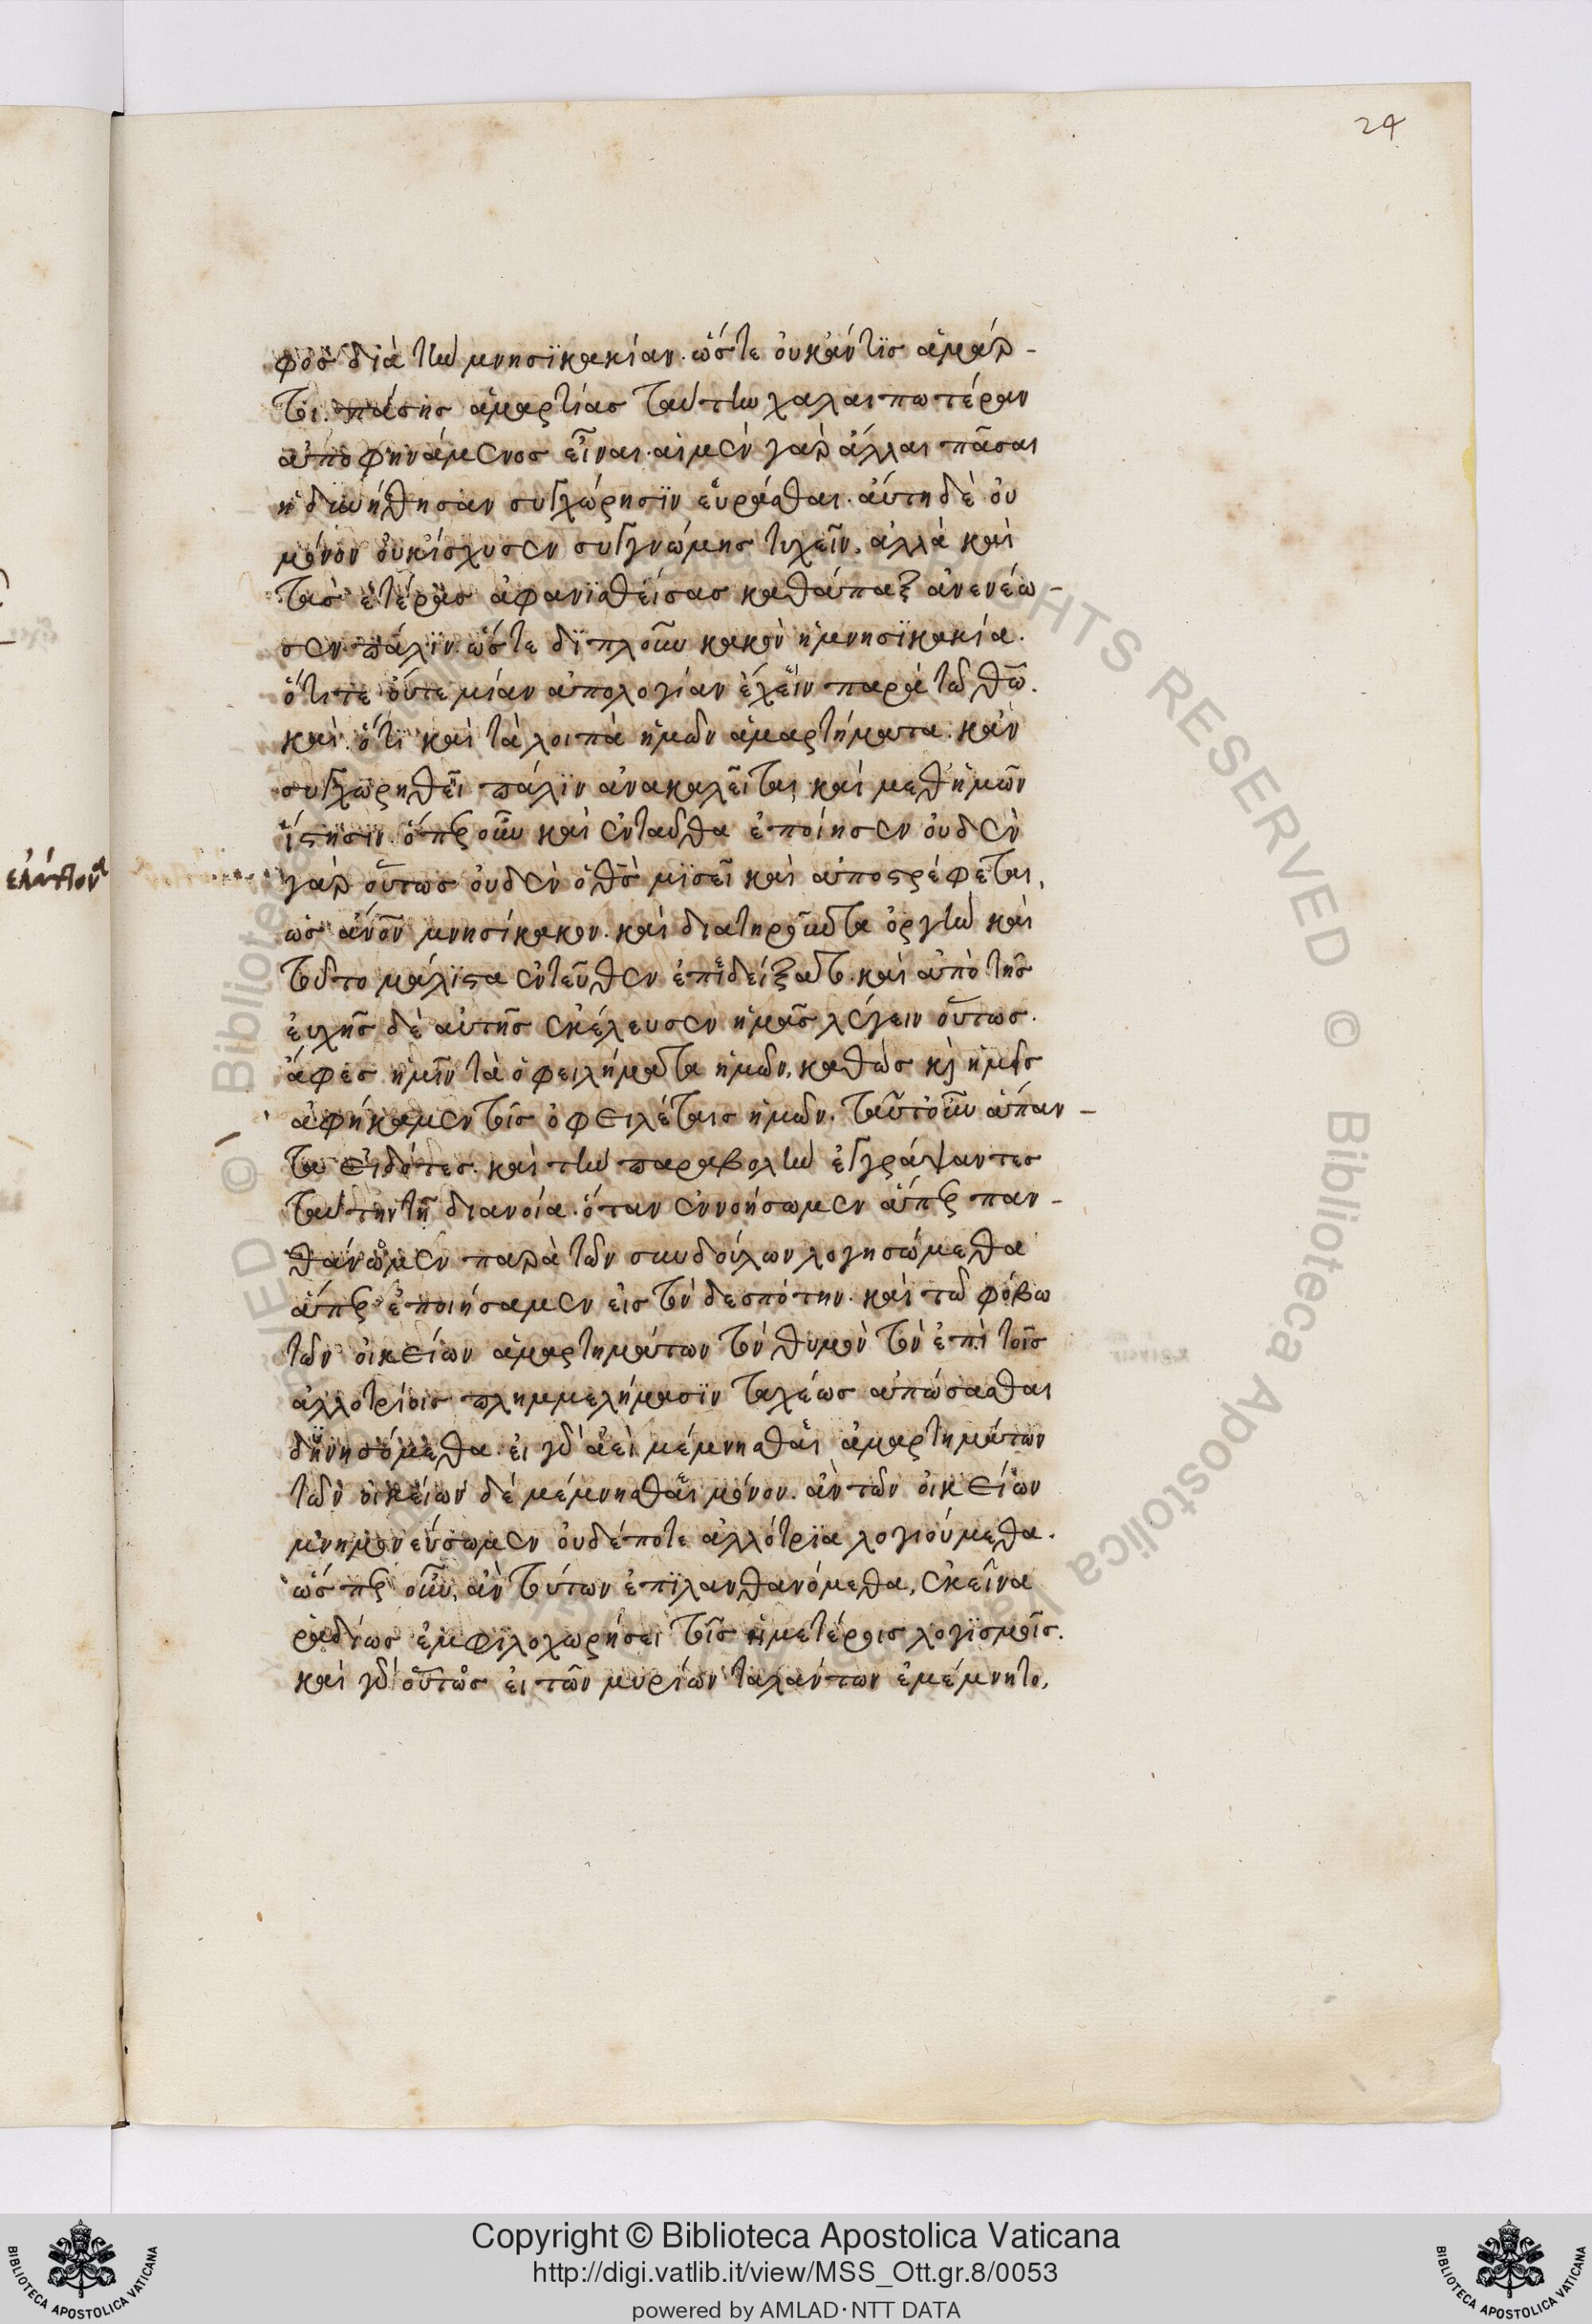 24
φος διὰ τὴν μνησϊκακίαν. ὥστε οὐκ ἄν τϊς ἁμάρ-
τοι πάσης ἁμαρτίας ταύτην χαλαιπωτέραν
ἀποφηνάμενος εἶναι. αἱ μὲν γὰρ ἄλλαι πᾶσαι
ἠδυνήθησαν συγχώρησϊν εὑρᾶσθαι. αὕτη δὲ οὐ
μόνον οὐκ ἴσχυσεν συγγνώμης τυχεῖν, ἀλλὰ καὶ
τὰς ἑτέρας ἀφανϊσθείσας καθάπαξ ἀνενέω-
σεν πάλϊν. ὥστε δϊπλοῦν κακὸν ἡ μνησϊκακία.
ὅτι τε οὔτε μίαν ἀπολογίαν ἔχειν παρὰ τῶ θῶ.
καὶ ὅτϊ καὶ τὰ λοιπὰ ἡμῶν ἁμαρτήματα. κἂν
συγχωρηθεῖ πάλϊν ἀνακαλεῖται, καὶ μεθ' ἡμῶν
ἵστησϊν. ὅπερ οὖν καὶ ἐνταῦθα ἐποίησεν οὐδὲν
γὰρ οὕτως οὐδὲν ὁ θς μϊσεῖ καὶ ἀποστρέφεται,
ὡς ἄνον μνησίκακον. καὶ διατηροῦντα ὀργὴν καὶ
τοῦτο μάλϊστα ἐντεῦθεν ἐπϊδείξατο. καὶ ἀπὸ τῆς
εὐχῆς δὲ αὐτῆς ἐκέλευσεν ἡμᾶς λέγειν οὕτως.
ἄφες ἡμῖν τὰ ὀφειλήματα ἡμῶν, καθὼς κὶ ἡμεῖς
ἀφήκαμεν τοῖς ὀφειλέταις ἡμῶν. ταῦτ' οὖν ἅπαν-
τα εἰδότες. καὶ τὴν παραβολὴν ἐγγράψαντες
ταύτην τῆ διανοία. ὅταν ἐννοήσωμεν ἅπερ παν-
θάνωμεν παρὰ τῶν συνδούλων λογησώμεθα
ἅπερ ἐποιήσαμεν εἰς τὸν δεσπότην. καὶ τῶ φόβω
τῶν οἰκείων ἁμαρτημάτων τὸν θυμὸν τὸν ἐπὶ τοῖς
ἀλλοτρίοις πλημμελήμασϊν ταχέως ἀπώσασθαι
δυνησόμεθα. εἰ γὰρ ἀεὶ μέμνησθαι ἁμαρτημάτων
τῶν οἰκείων δὲ μέμνησθαι μόνον. ἂν τῶν οἰκείων
μνημονεύσωμεν οὐδέποτε ἀλλότρϊα λογιούμεθα.
ὥσπερ οὖν, ἂν τούτων ἐπϊλανθανόμεθα, ἐκεῖνα
ραδίως ἐμφϊλοχωρήσει τοῖς ἡμετέροις λογϊσμοῖς.
καὶ γὰρ οὗτος εἰ τῶν μυρίων ταλάντων ἐμέμνητο,
Copyright © Biblioteca Apostolica Vaticana
http://digi.vatlib.it/view/MSS_Ott.gr.8/0053
powered by AMLAD·NTT DATA